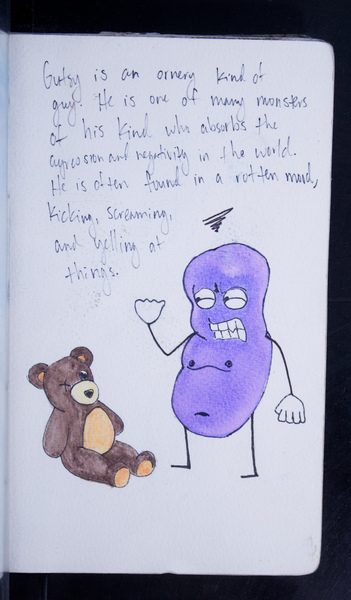 Gutsy is an ornery kind of
guy. He is one of many monsters
of his kind who absorbs the
aggression and negativity in the world.
He is often found in a rotten mood,
kicking, screaming,
and yelling at
things.